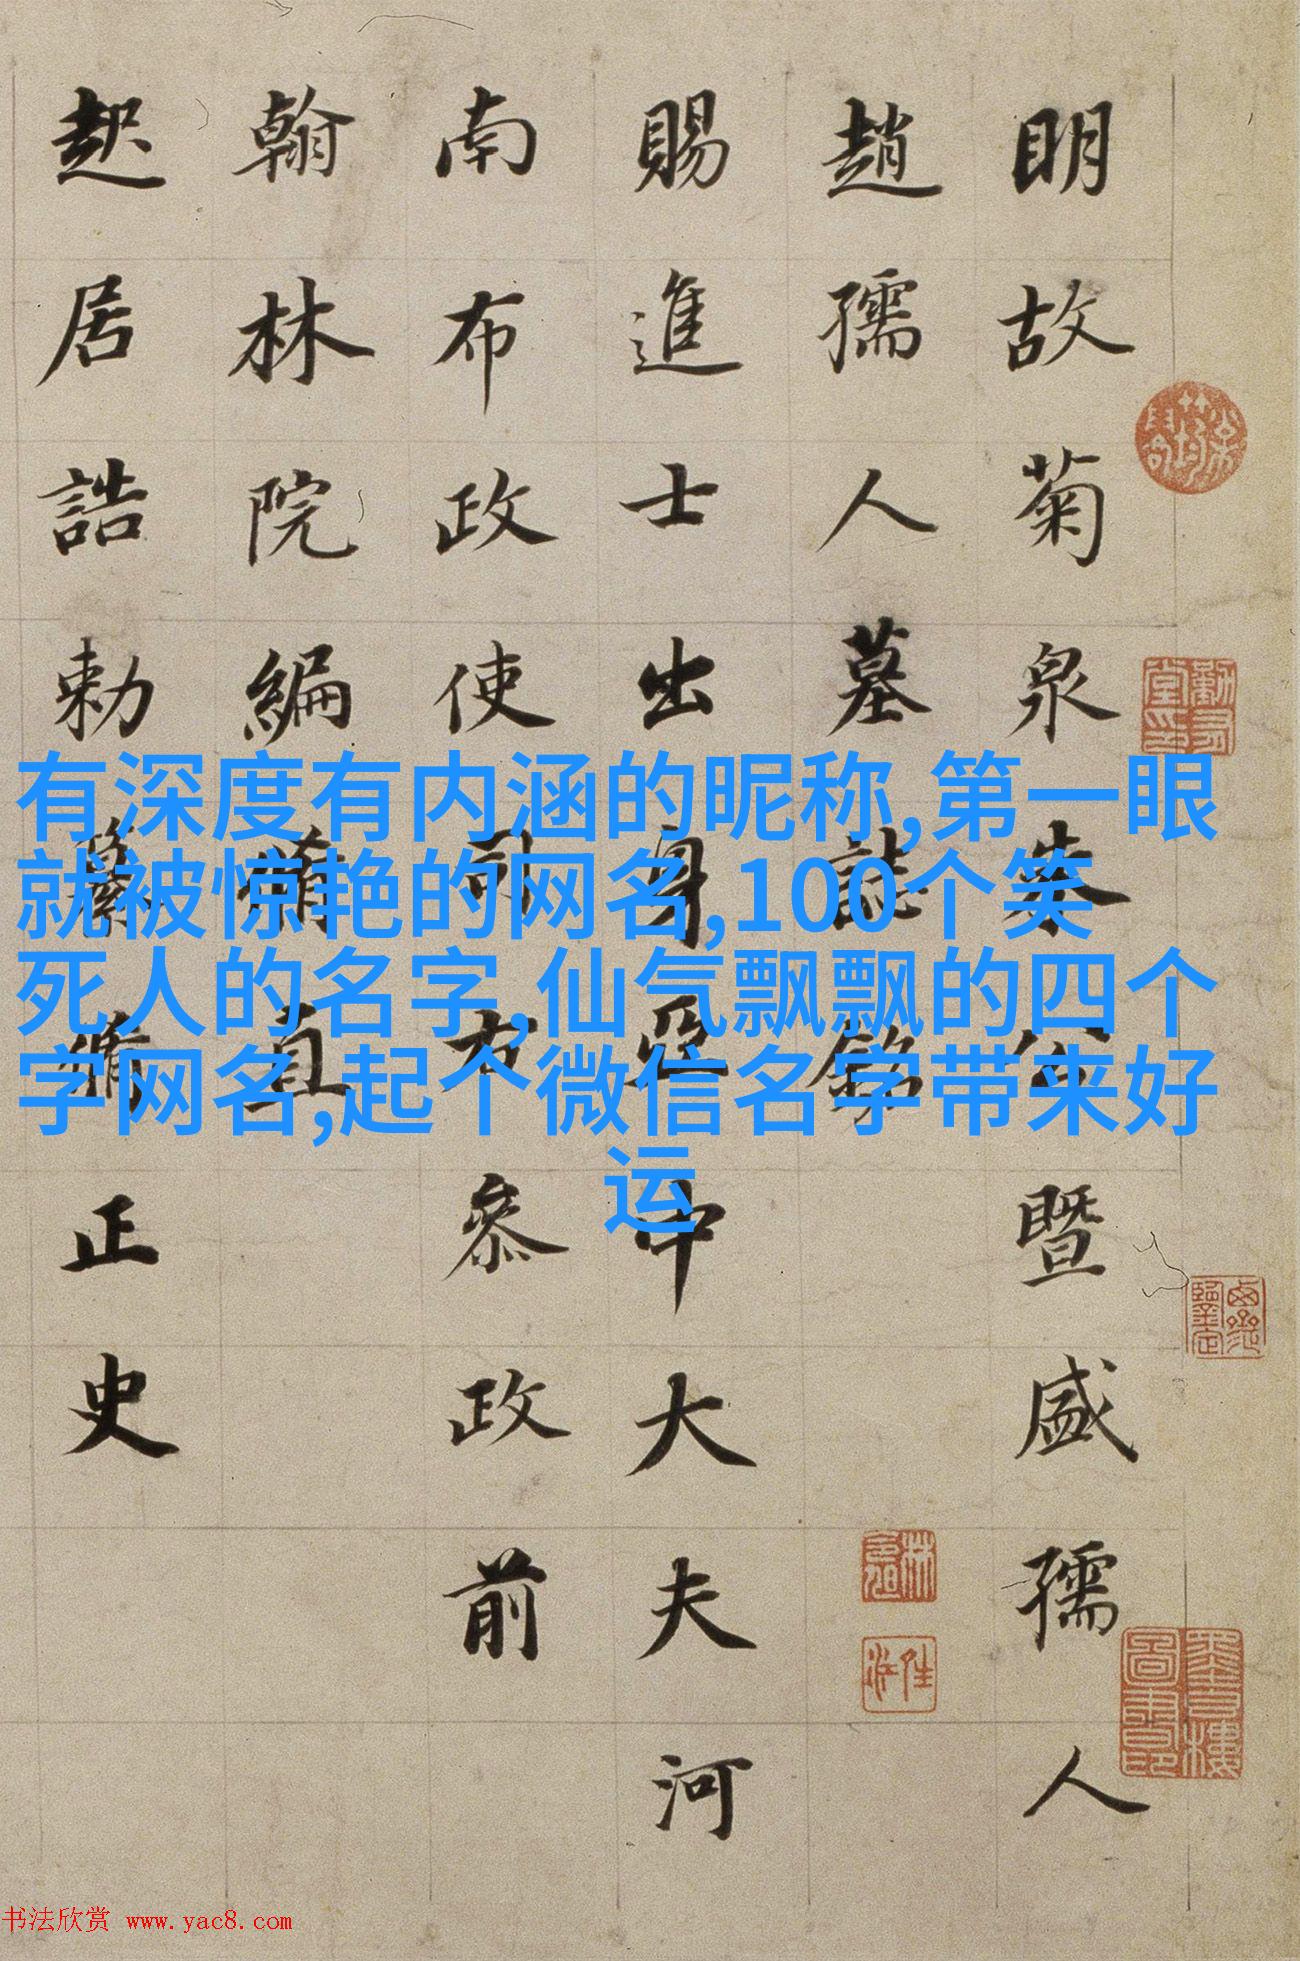 明故菊泉朱公暨盛孺人
趙孺人墓誌銘
賜進士出身亞中大夫河
南布政使司右叅政前
翰林院編脩直
起居誥勅纂脩正史
有深度有内涵的昵称,第一眼
就被惊艳的网名,100个笑
死人的名字,仙气飘飘的四个
字网名,起个微信名字带来好
运
书法欣赏 www.yac8.com